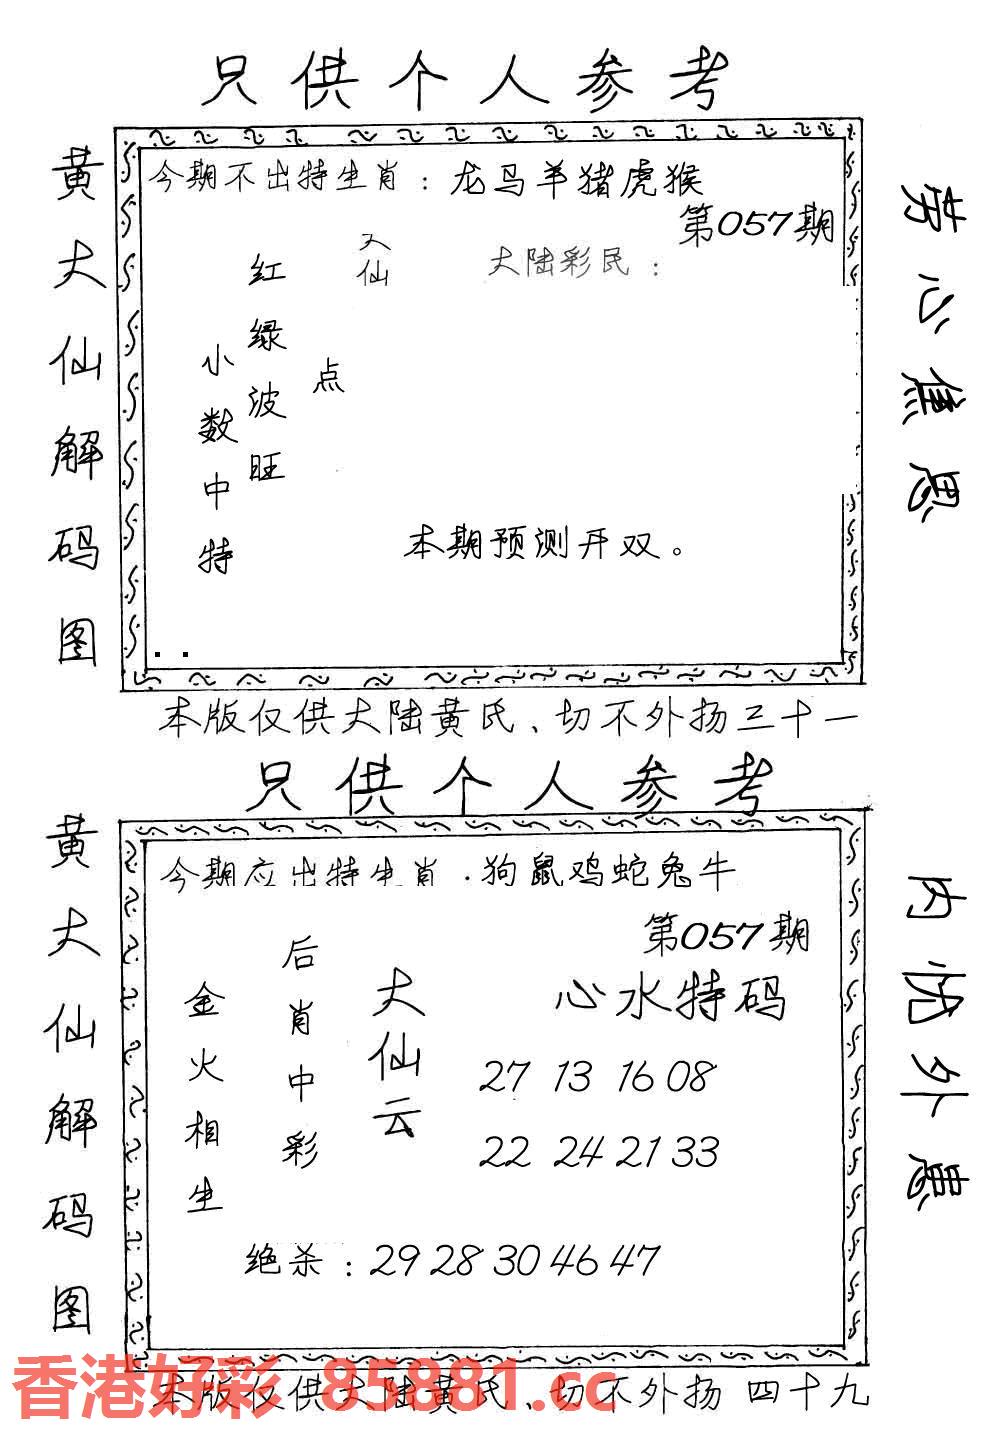 只供个人参考
黄大仙解码图
今期不出特生肖：龙马羊猪虎猴
第057期
大仙
大陆彩民：
红绿波旺
小数中特
点
本期预测开双。
劳心焦思
本版仅供大陆黄氏、切不外扬三十一
只供个人参考
黄大仙解码图
今期应出特生肖．狗鼠鸡蛇兔牛
第057期
后肖中彩
金火相生
大仙云
心水特码
27 13 16 08
22 24 21 33
绝杀：29 28 30 46 47
内忧外患
香港好彩 85881.cc
本版仅供大陆黄氏、切不外扬 四十九